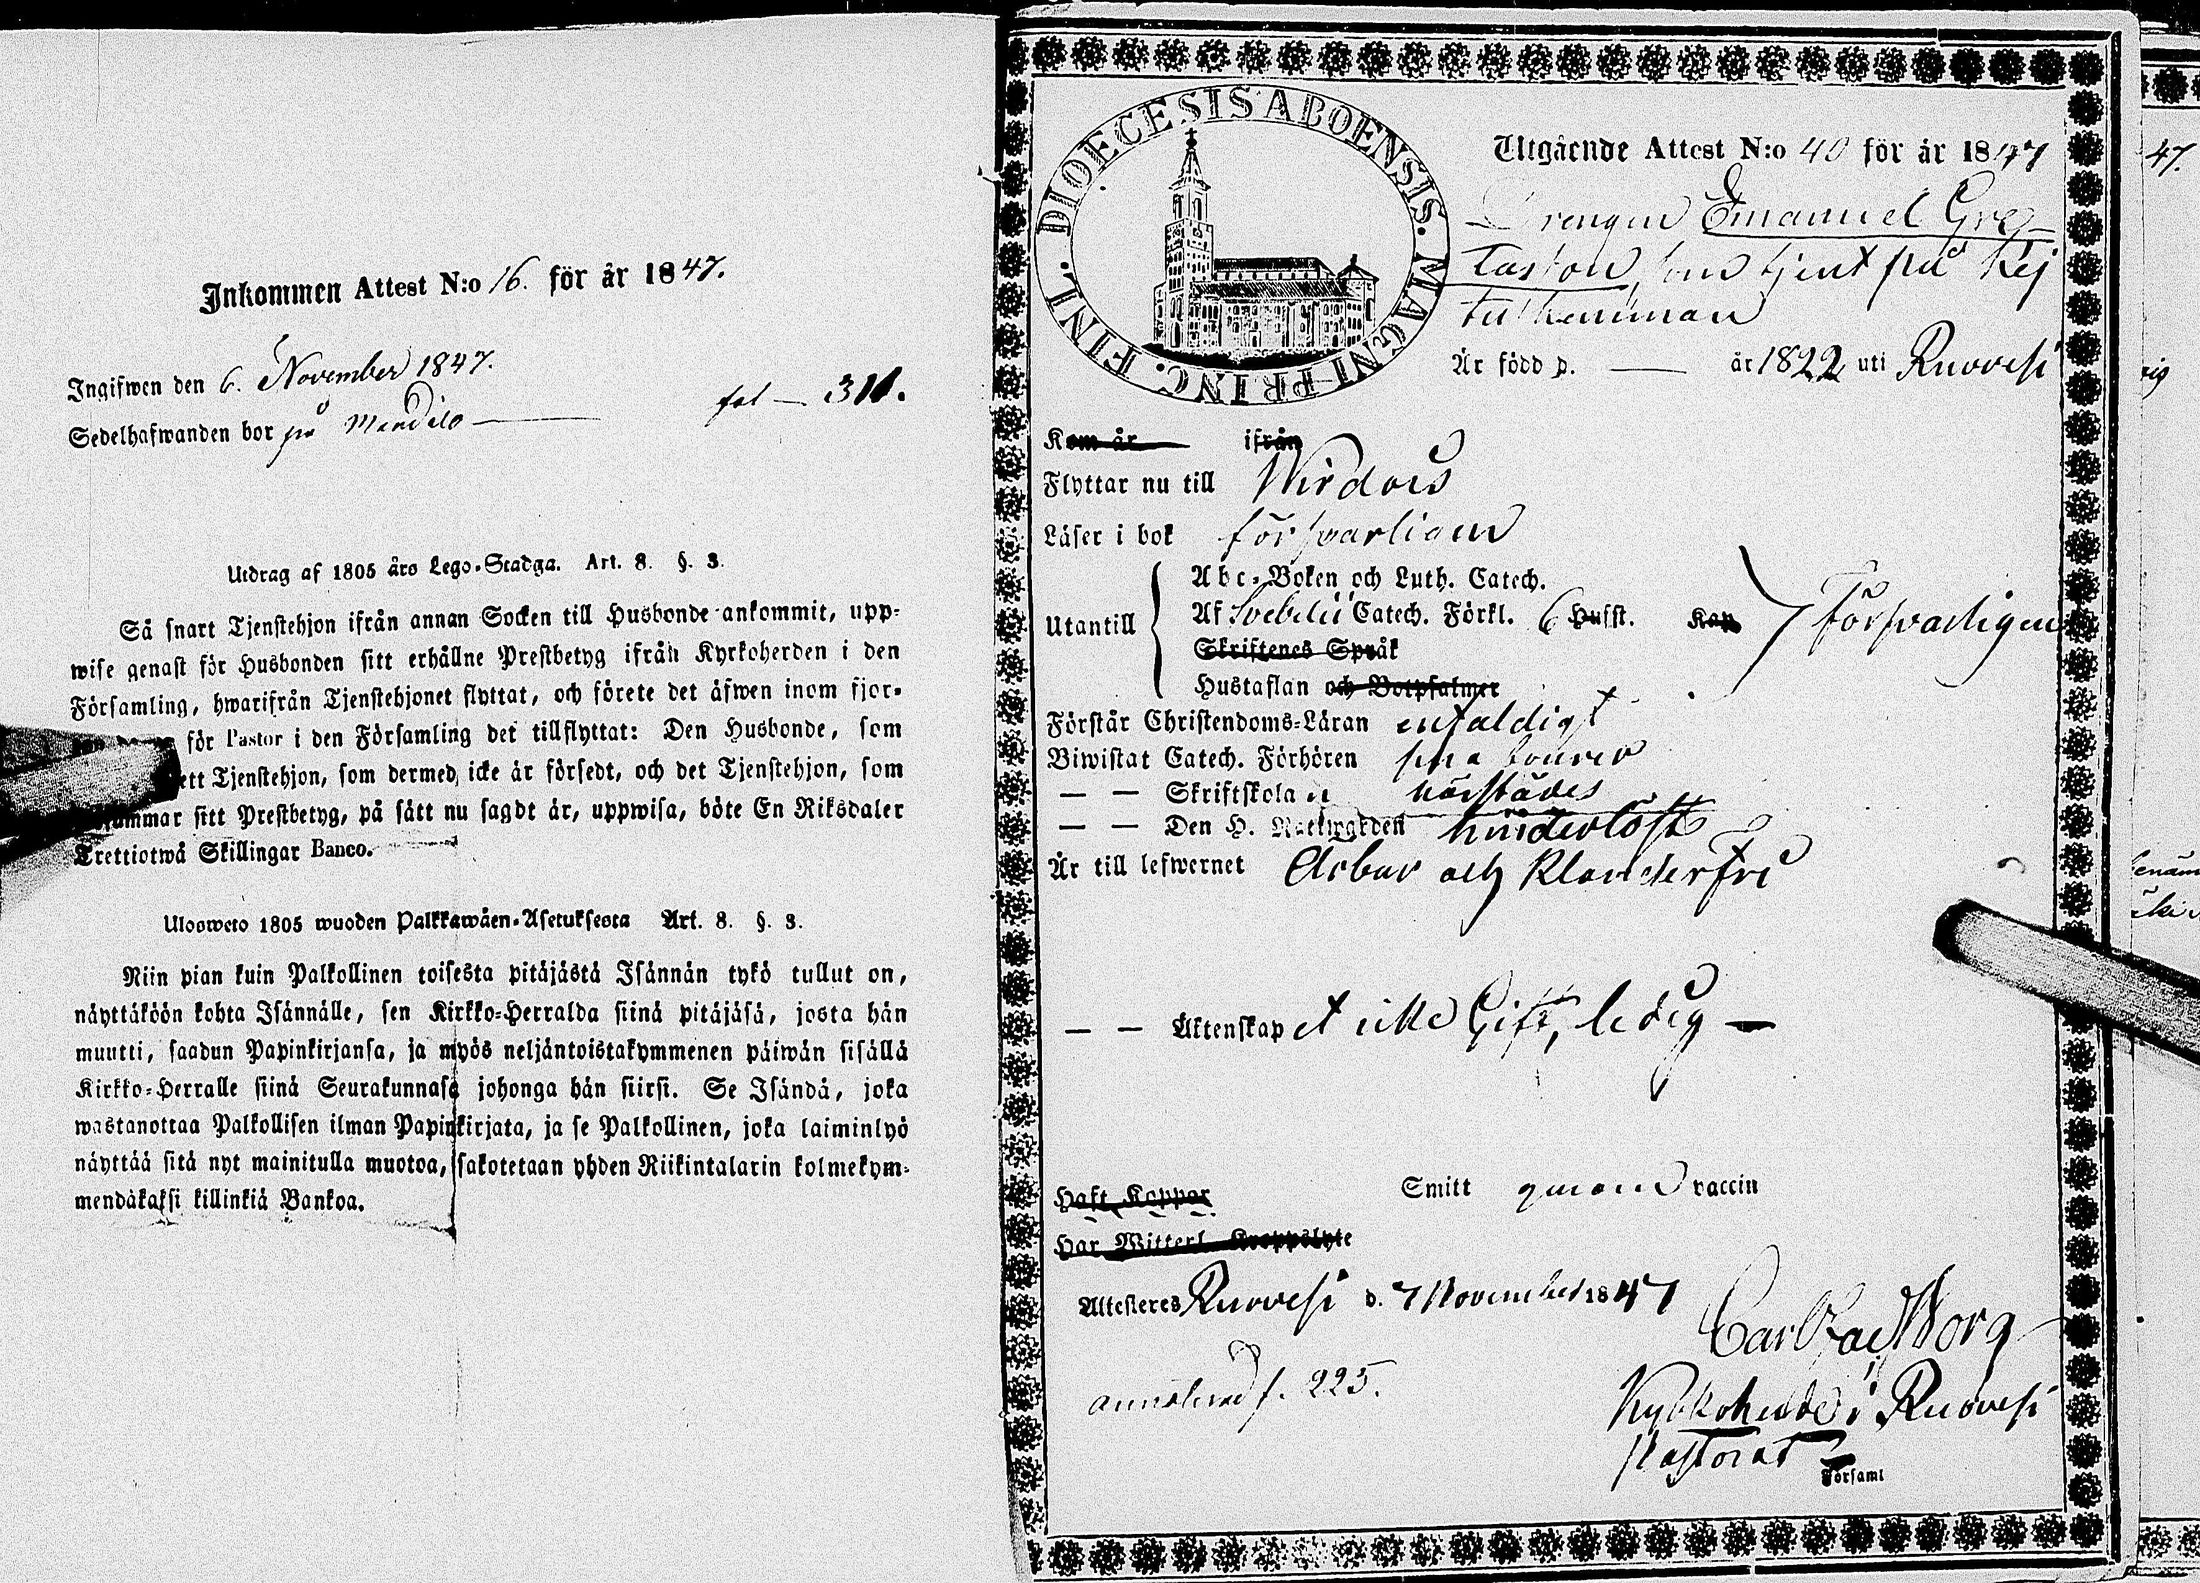 Inkommen Attest N:o 16. för år 1847.
Ingifwen den 6. November 1847.
Sedelhafwanden bor på
fol — 311.
Utdrag af 1805 års Lego-Stadga. Art. 8. §. 3.
Så snart Tjenstehjon ifrån annan Socken till Husbonde ankommit, upp-
wise genast för Husbonden sitt erhållne Prestbetyg ifrån Kyrkoherden i den
Församling, hwarifrån Tjenstehjonet flyttat, och förete det äfwen inom fjor-
för Pastor i den Församling det tillflyttat: Den Husbonde, som
ett Tjenstehjon, som dermed icke är försedt, och det Tjenstehjon, som
sitt Prestbetyg, på sätt nu sagdt är, uppwisa, böte En Riksdaler
Trettiotwå Skillingar Banco.
Ulosweto 1805 wuoden Palkkawäen-Asetuksesta Art. 8. §. 3.
Niin pian kuin Palkollinen toisesta pitäjästä Isännän tykö tullut on,
näyttäköön kohta Isännälle, sen Kirkko-Herralda siinä pitäjäsä, josta hän
muutti, saadun Papinkirjansa, ja myös neljäntoistakymmenen päiwän sisällä
Kirkko-Herralle siinä Seurakunnasa johonga hän siirsi. Se Isändä, joka
wastanottaa Palkollisen ilman Papinkirjata, ja se Palkollinen, joka laiminlyö
näyttää sitä nyt mainitulla muotoa, sakotetaan yhden Riikintalarin kolmekym-
mendäkaksi killinkiä Bankoa.
DIOECESIS ABOENSIS. MAGNI PRINC. FINL.
Utgående Attest N:o 40 för år 1847
Drengen Emanuel Gre
tjent på
Är född d. — år 1822 uti Ruovesi
Kom år — ifrån
Flyttar nu till Wirdois
Läser i bok försvarligen
Abc-Boken och Luth. Catech.
Utantill Af Svebelii Catech. Förkl. 6 Husst. Kap Försvarligen
Skriftenes Språk
Hustaflan och Botpsalmer
Förstår Christendoms-Läran enfaldigt
Biwistat Catech. Förhören
— — Skriftskola härstädes
— — Den H. Nattwarden hinderlöst
Är till lefwernet Ärbar och Klanderfri
— — Äktenskap ej icke Gift, ledig —
Haft Koppor Smitt genom vaccin
Har Witterl. Kroppslyte
Attesteres Ruovesi d. 7 November 1847
Carl Worg
f. 225.
Kyrkoherde i Ruovesi
Pastorat
Församl
47.